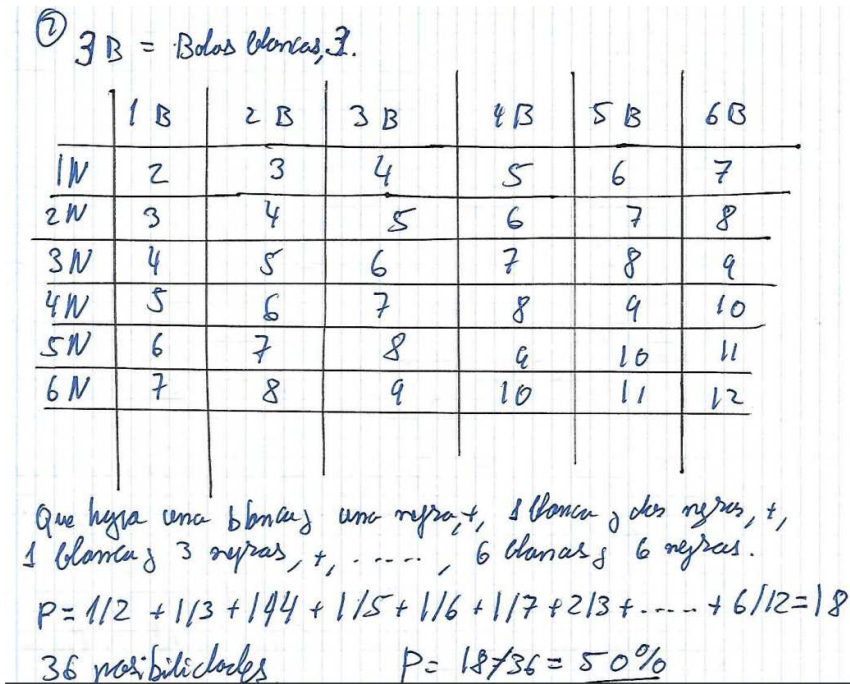 ②
3B = Bolas blancas, 3.
1B 2B 3B 4B 5B 6B
1N 2 3 4 5 6 7
2N 3 4 5 6 7 8
3N 4 5 6 7 8 9
4N 5 6 7 8 9 10
5N 6 7 8 9 10 11
6N 7 8 9 10 11 12
Que haya una blanca y una negra, +, 1 blanca y dos negras, +,
1 blanca y 3 negras, +, ....., 6 blancas y 6 negras.
P = 1/2 + 1/3 + 1/4 + 1/5 + 1/6 + 1/7 + 2/3 + ..... + 6/12 = 18
36 posibilidades P = 18/36 = 50%